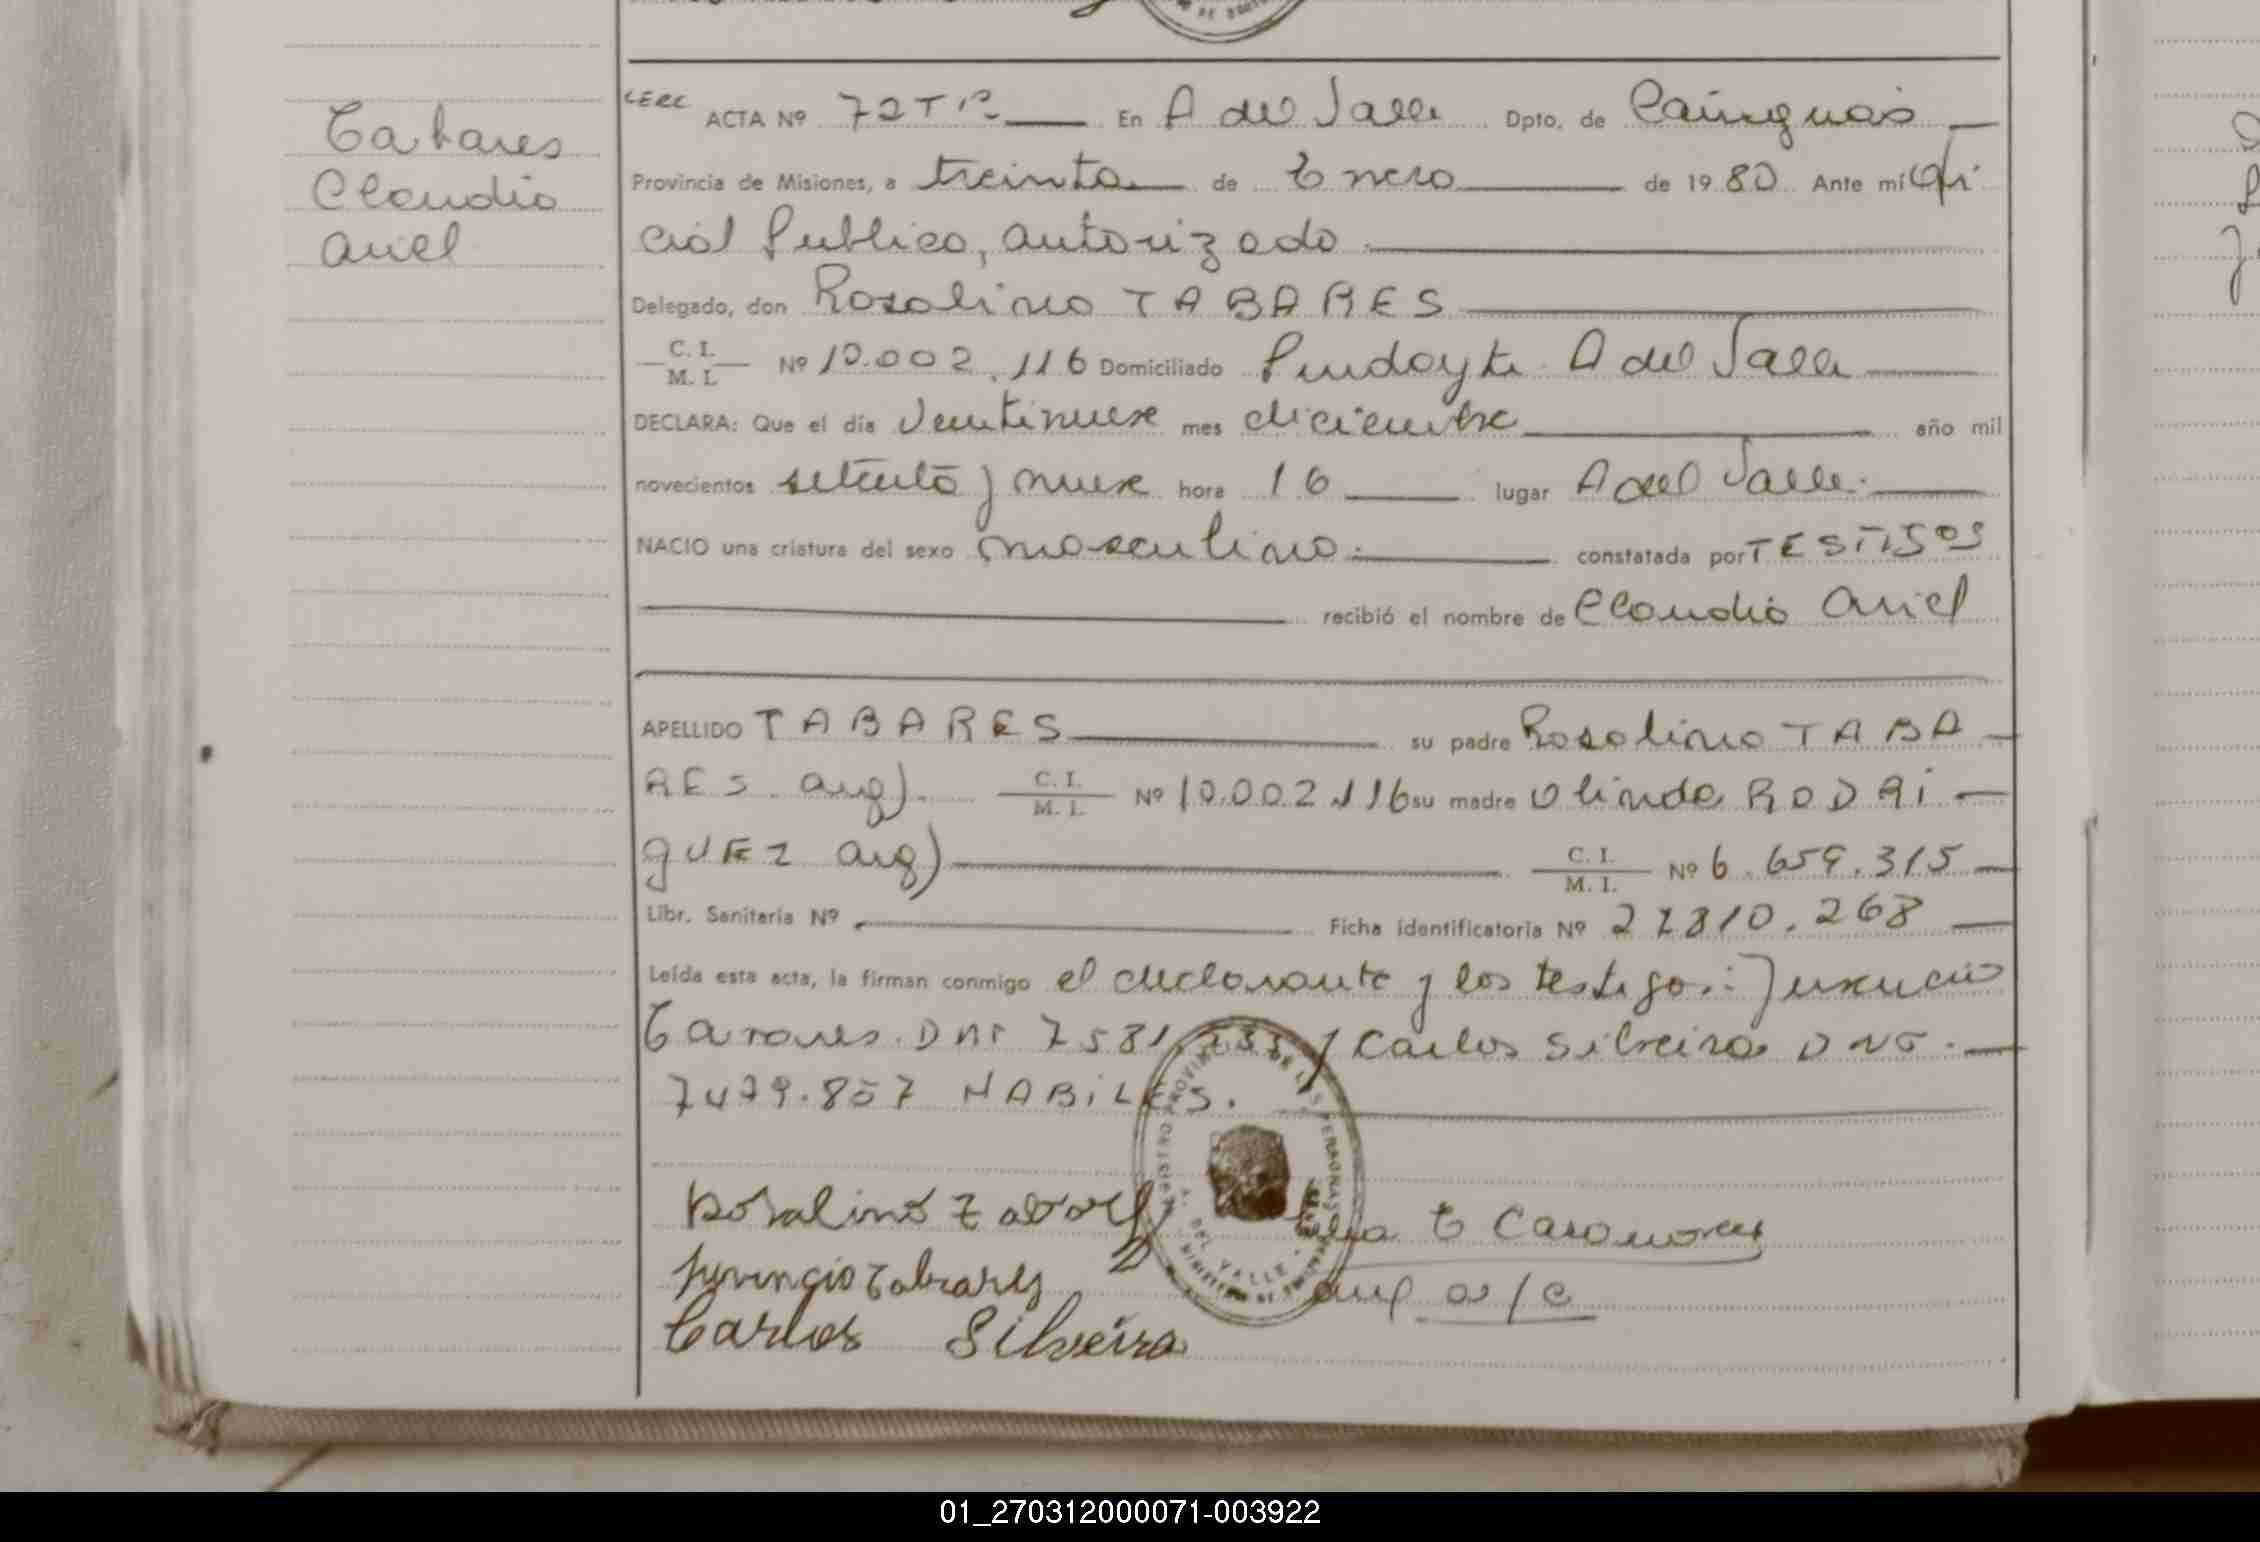 Tabares
Claudio
Ariel
ACTA Nº 72 T 1º En A del Valle Dpto. de Cainguas
Provincia de Misiones, a treinta de Enero de 1980 Ante mí Ofi
cial Publico, autorizado
Delegado, don Rosolino TABARES
C. I. / M. I. Nº 10.002.116 Domiciliado Pindayti A del Valle
DECLARA: Que el día Veintinueve mes diciembre año mil
novecientos setenta y nueve hora 16 lugar A del Valle.
NACIO una criatura del sexo masculino. constatada por TESTIGOS
recibió el nombre de Claudio Ariel
APELLIDO TABARES su padre Rosolino TABA
RES arg). C. I. / M. I. Nº 10.002.116 su madre Olinda RODRI
GUEZ arg) C. I. / M. I. Nº 6.659.315
Libr. Sanitaria Nº Ficha identificatoria Nº 27810.268
Leída esta acta, la firman conmigo el declarante y los testigos: Juvencio
Tavares DNI 7581 y Carlos Silveira DNI.
7479.857 HABILES.
Rosalino Tabares
Juvencio Tabares
Carlos Silveira
REGISTRO PROVINCIAL DE LAS PERSONAS
A. DEL VALLE
E Casanova
a/c
01_270312000071-003922